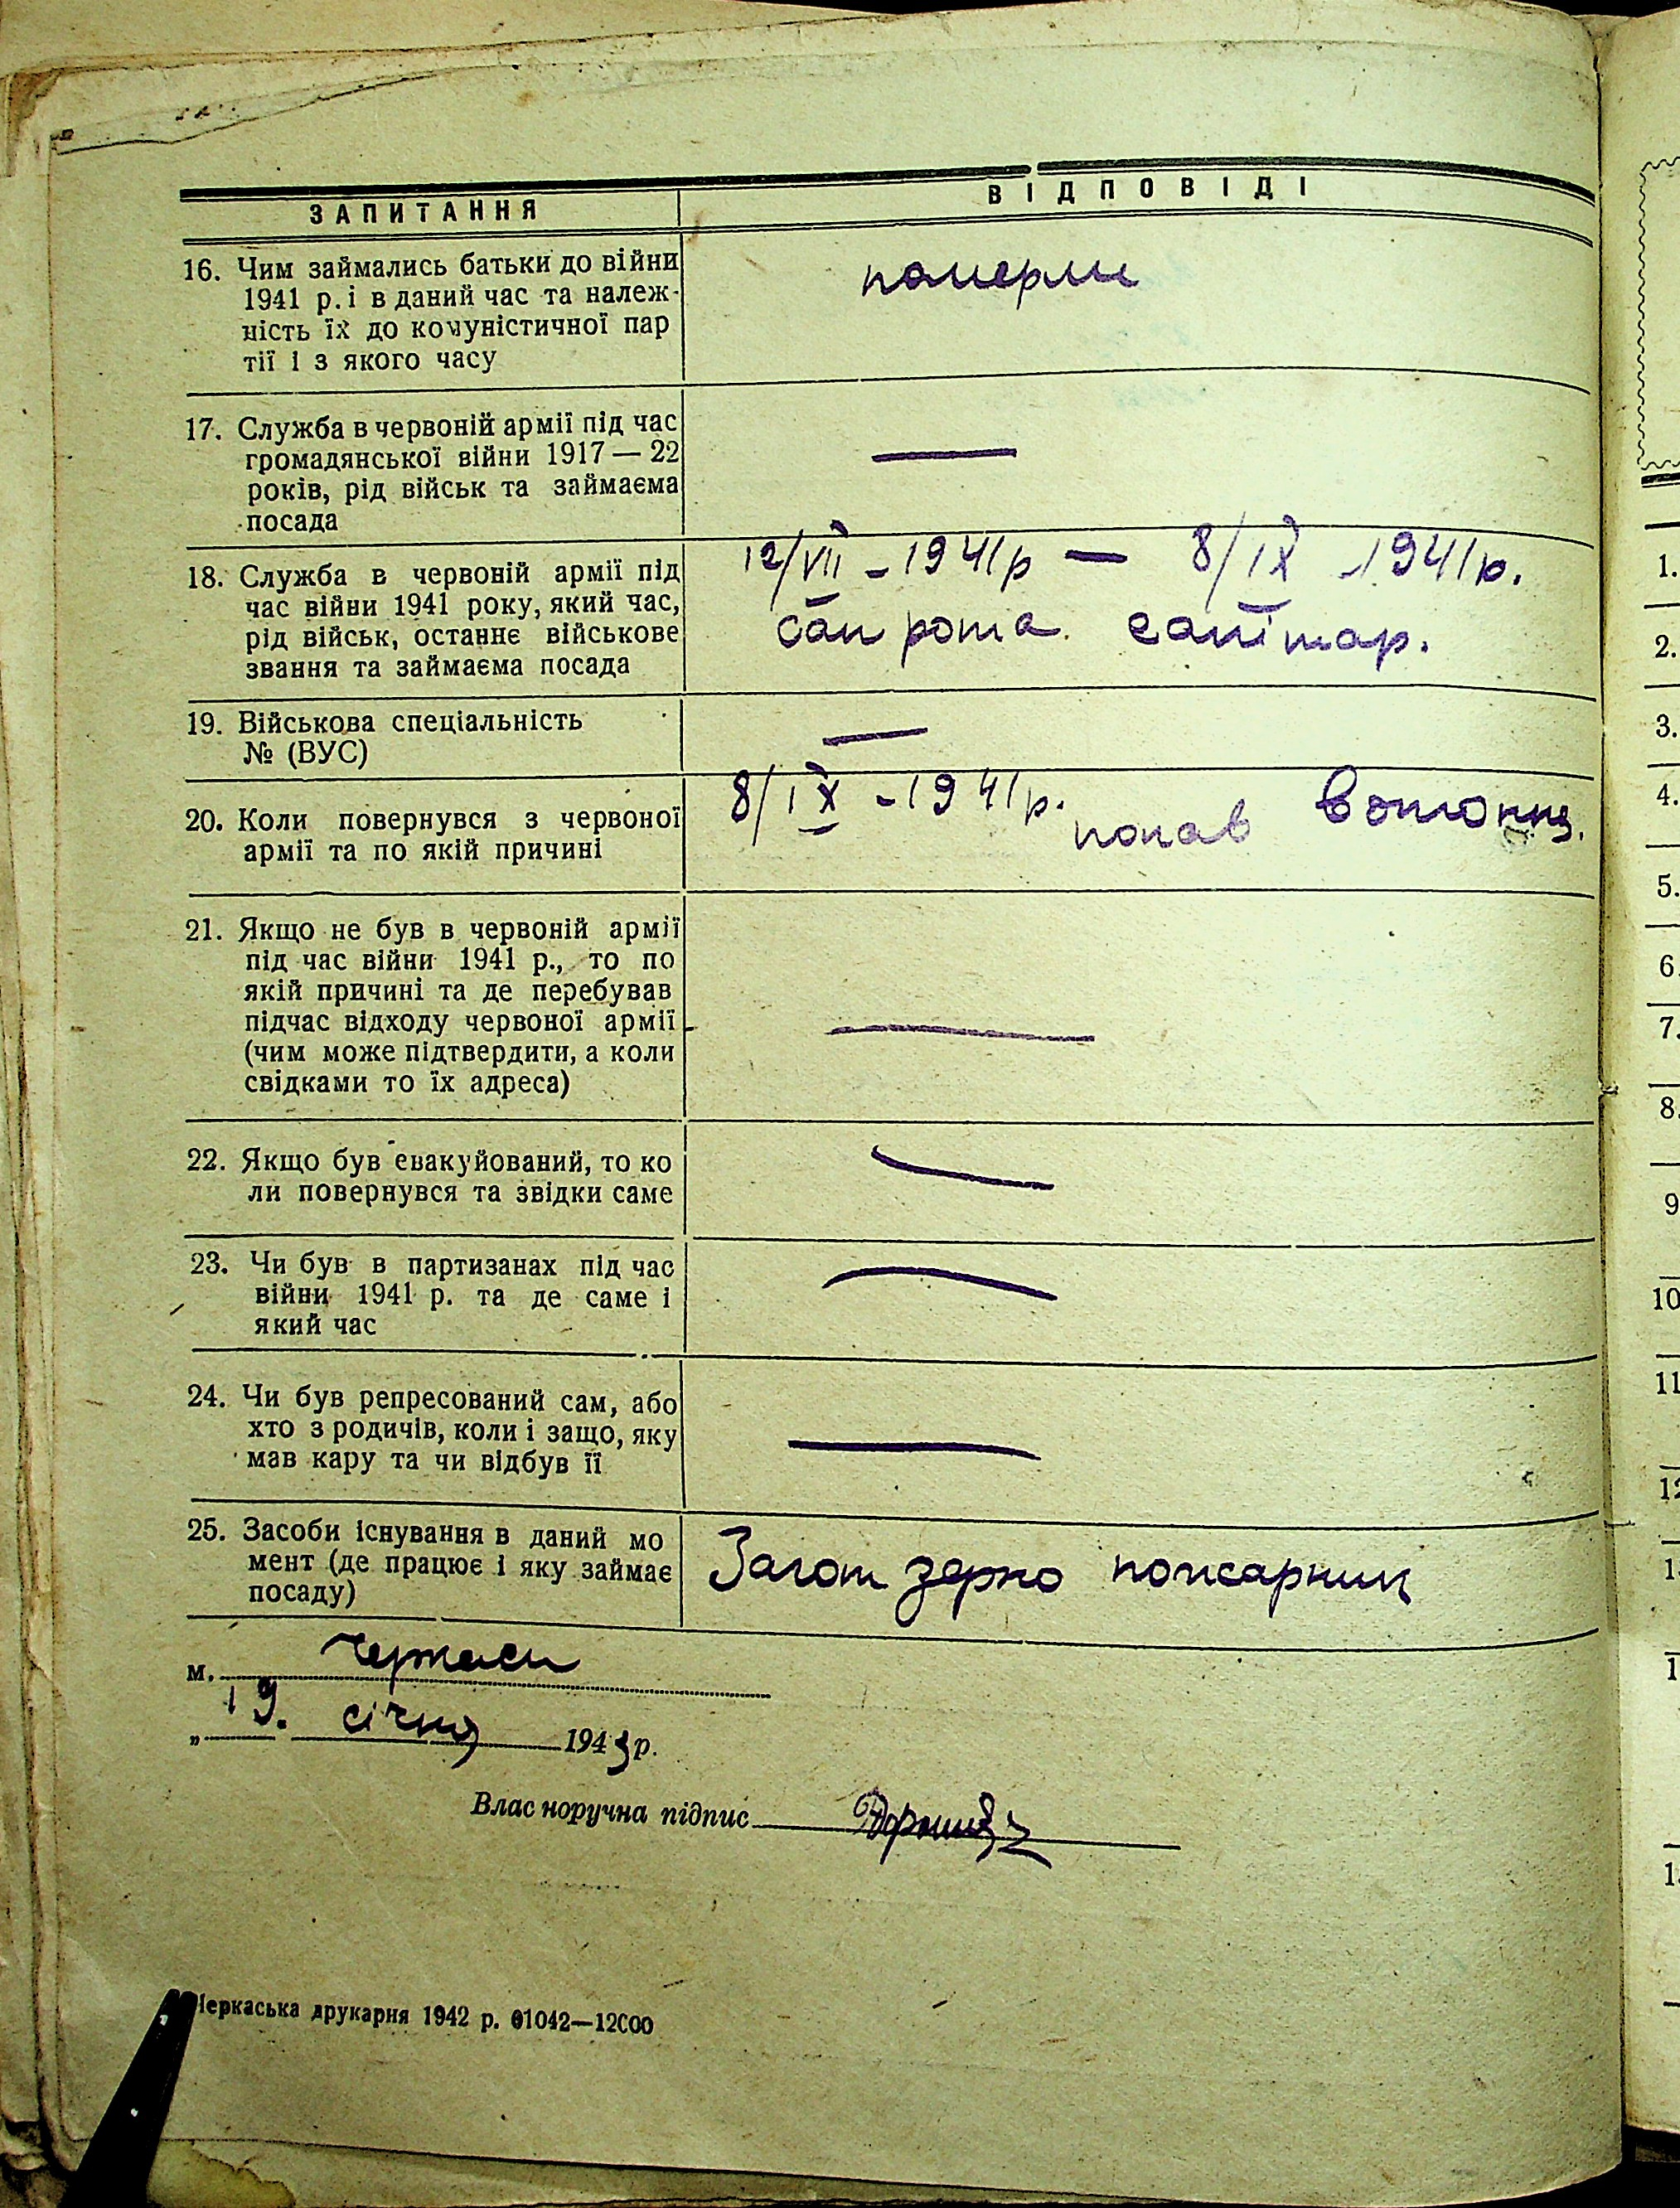 ЗАПИТАННЯ
ВІДПОВІДІ
16. Чим займались батьки до війни
1941 р. і в даний час та належ-
ність їх до комуністичної пар
тії і з якого часу
померли
17. Служба в червоній армії під час
громадянської війни 1917 — 22
років, рід військ та займаєма
посада
—
18. Служба в червоній армії під
час війни 1941 року, який час,
рід військ, останнє військове
звання та займаєма посада
12/VII - 1941 р — 8/IX - 1941 р.
Сан рота. санітар.
19. Військова спеціальність
№ (ВУС)
—
20. Коли повернувся з червоної
армії та по якій причині
8/IX - 1941 р. попав
21. Якщо не був в червоній армії
під час війни 1941 р., то по
якій причині та де перебував
підчас відходу червоної армії
(чим може підтвердити, а коли
свідками то їх адреса)
—
22. Якщо був евакуйований, то ко
ли повернувся та звідки саме
—
23. Чи був в партизанах під час
війни 1941 р. та де саме і
який час
—
24. Чи був репресований сам, або
хто з родичів, коли і защо, яку
мав кару та чи відбув її
—
25. Засоби існування в даний мо
мент (де працює і яку займає
посаду)
Загот зерно пожарник
м. Черкаси
„ 19. січня 1943 р.
Влас норучна підпис
Черкаська друкарня 1942 р. 01042—12000
1.
2.
3.
4.
5.
6
7.
8.
9
10
11
12
1
1
1